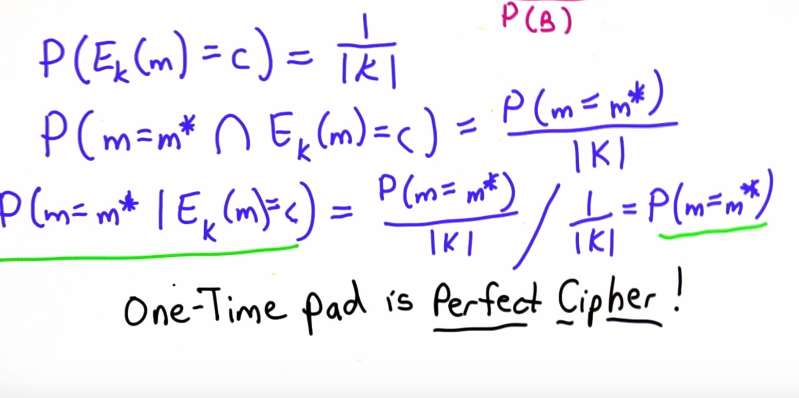 P(B)
P(E_k(m) = c) = 1/|K|
P(m=m* ∩ E_k(m)=c) = P(m=m*)/|K|
P(m=m* | E_k(m)=c) = P(m=m*)/|K| / 1/|K| = P(m=m*)
One-Time pad is Perfect Cipher!